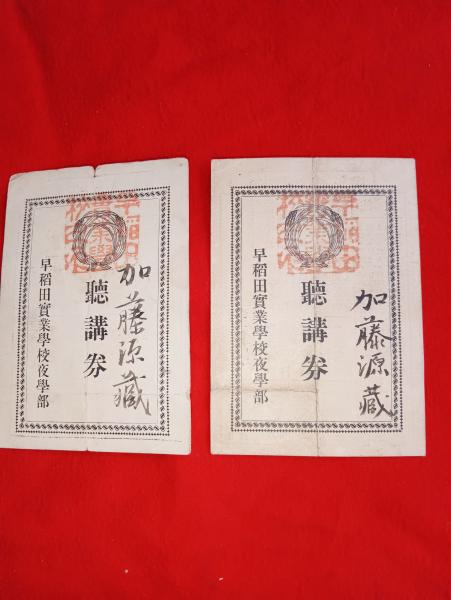 加藤源藏
聽講券
早稲田實業學校夜學部
加藤源藏
聽講券
早稲田實業學校夜學部